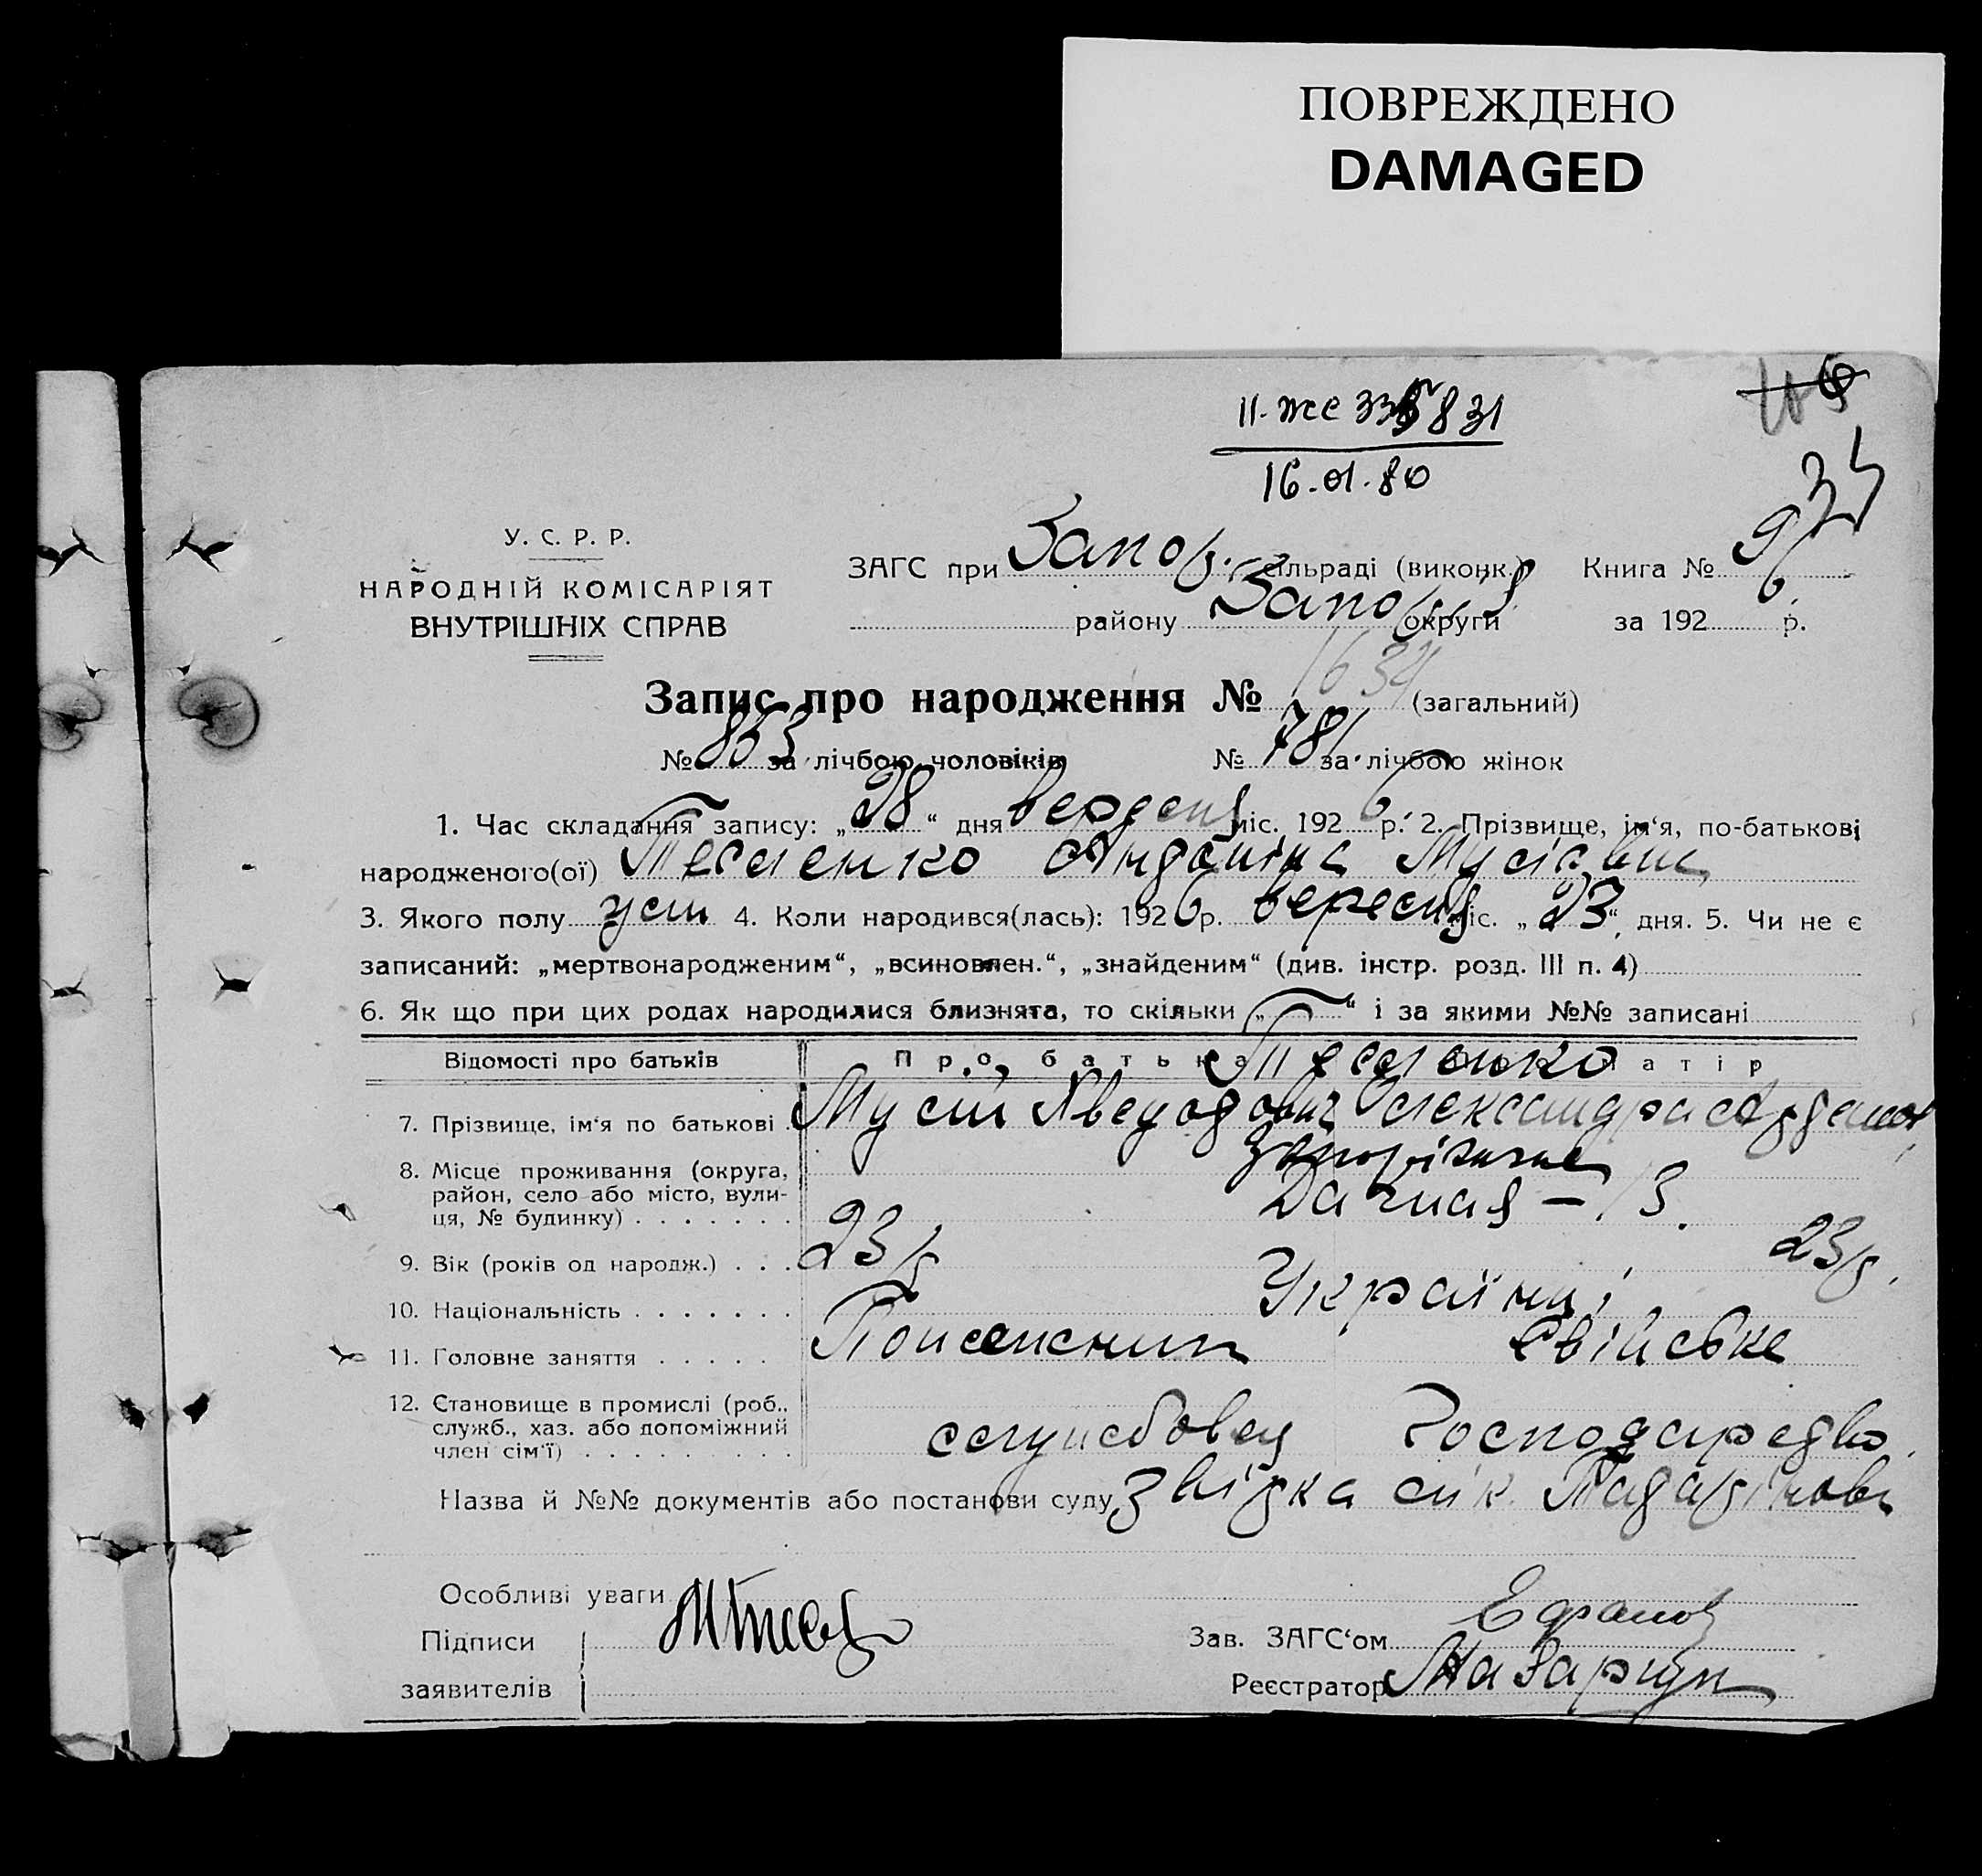 ПОВРЕЖДЕНО
DAMAGED
II-ЖС 335831
16.01.80
У. С. Р. Р.
НАРОДНІЙ КОМІСАРІЯТ
ВНУТРІШНІХ СПРАВ
ЗАГС при Запор. сільраді (виконк.) Книга № 9
району Запор округи за 1926 р.
Запис про народження № 1634 (загальний)
№ 853 за лічбою чоловіків № 781 за лічбою жінок
1. Час складання запису: „28“ дня вересня міс. 1926 р. 2. Прізвище, ім‘я, по-батькові
народженого(ої)
3. Якого полу жін 4. Коли народився(лась): 1926 р. вересня міс. „23“ дня. 5. Чи не є
записаний: „мертвонародженим“, „всиновлен.“, „знайденим“ (див. інстр. розд. III п. 4)
6. Як що при цих родах народилися близнята, то скільки „ “ і за якими №№ записані
Відомості про батьків Про батька матір
7. Прізвище, ім‘я по батькові Мусій Олександра
8. Місце проживання (округа, район, село або місто, вулиця, № будинку) Запоріжжя
Дачная – 13.
9. Вік (років од народж.) 23 р 23 р.
10. Національність Українці
11. Головне заняття Свійське
12. Становище в промислі (роб., служб., хаз. або допоміжний член сім‘ї) службовец господарство
Назва й №№ документів або постанови суду
Особливі уваги
Підписи
заявителів
Зав. ЗАГС‘ом
Реєстратор